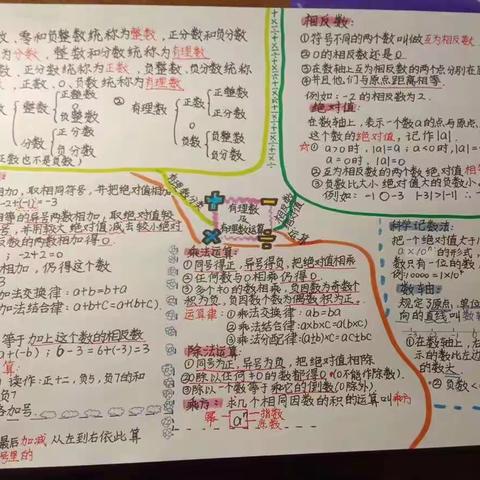 零和负整数统称为整数,正分数和负分数
为分数,整数和分数统称为有理数
正分数统称为正数,负整数,负分数统称
正数,0,负数统称为有理数
整数
正整数
0
负整数
分数
正分数
负分数
②有理数
正有理数
正整数
正分数
0
负有理数
负整数
负分数
正数也不是负数)
相反数:
①符号不同的两个数叫做互为相反数
②0的相反数还是0
③在数轴上互为相反数的两个点分别在原
④并且他们与原点距离相等
例如:-2的相反数为2.
绝对值:
在数轴上,表示一个数a的点与原点
这个数的绝对值,记作|a|
☆①a>0时,|a|=a;a<0时,|a|=
a=0时,|a|=0
②互为相反数的两个数的绝对值相等
③负数比大小,绝对值大的负数小
例如:-1○-3 |-3|>|-1|
相加,取相同符号,并把绝对值相加
-2+(-1)=-3
相等的异号两数相加,取绝对值较
号,并用较大绝对值减去较小绝对
反数的两数相加得0
;-2+2=0
相加,仍得这个数
3
加法交换律:a+b=b+a
加法结合律:a+b+c=a+(b+c)
等于加上这个数的相反数
a+(-b);6-3=6+(-3)=3
算:
操作:正十二,负5,负7的和
负7
各加号.
最后加减 从左到右依此算
号里的
有理数
及
有理数运算
有理数分类
乘法运算:
①同号得正,异号得负,把绝对值相乘
②任何数与0相乘仍得0
③多个不0的数相乘,负因数为奇数个
积为负,负因数个数为偶数,积为正.
运算律:①乘法交换律:ab=ba
②乘法结合律:axbxc=a(bxc)
③乘法分配律:(a+b)xc=ac+bc
除法运算:
①同号为正,异号为负,把绝对值相除
②0除以任何≠0的数都得0.(0不能作除数).
③除以一个数等于乘它的倒数(0除外)
乘方:求几个相同因数的积的运算叫乘方
幂
aⁿ
指数
底数
科学记数法:
把一个绝对值大于1
a×10ⁿ的形式,
数只有一位的数
例:10000=1×10⁴
数轴:
规定了原点,单位
向的直线叫数轴
①在数轴上,右
示的数比左边
的数大
②负数<